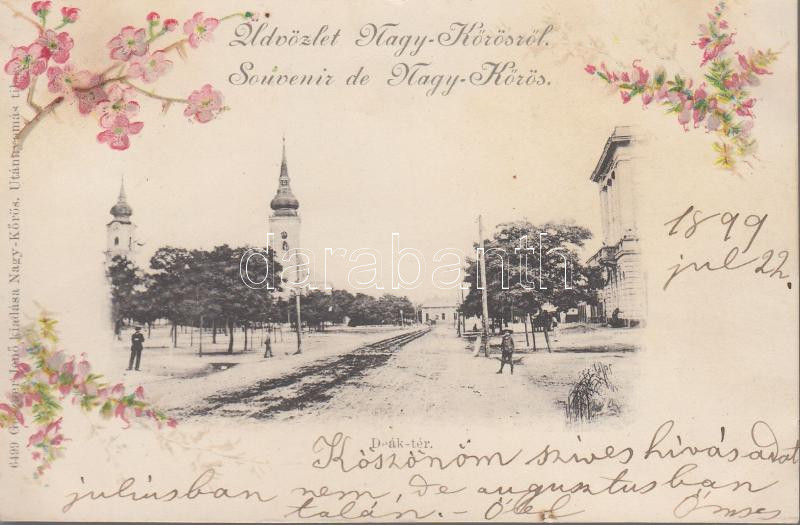 Üdvözlet Nagy-Kőrösről.
Souvenir de Nagy-Kőrös.
1899
jul 22.
darabanth
Deák-tér.
Köszönöm szives hivásodat
juliusban nem, de augusztusban
talán. - Ölel
6499 Jenő kiadása Nagy-Kőrös. Utánnyomás